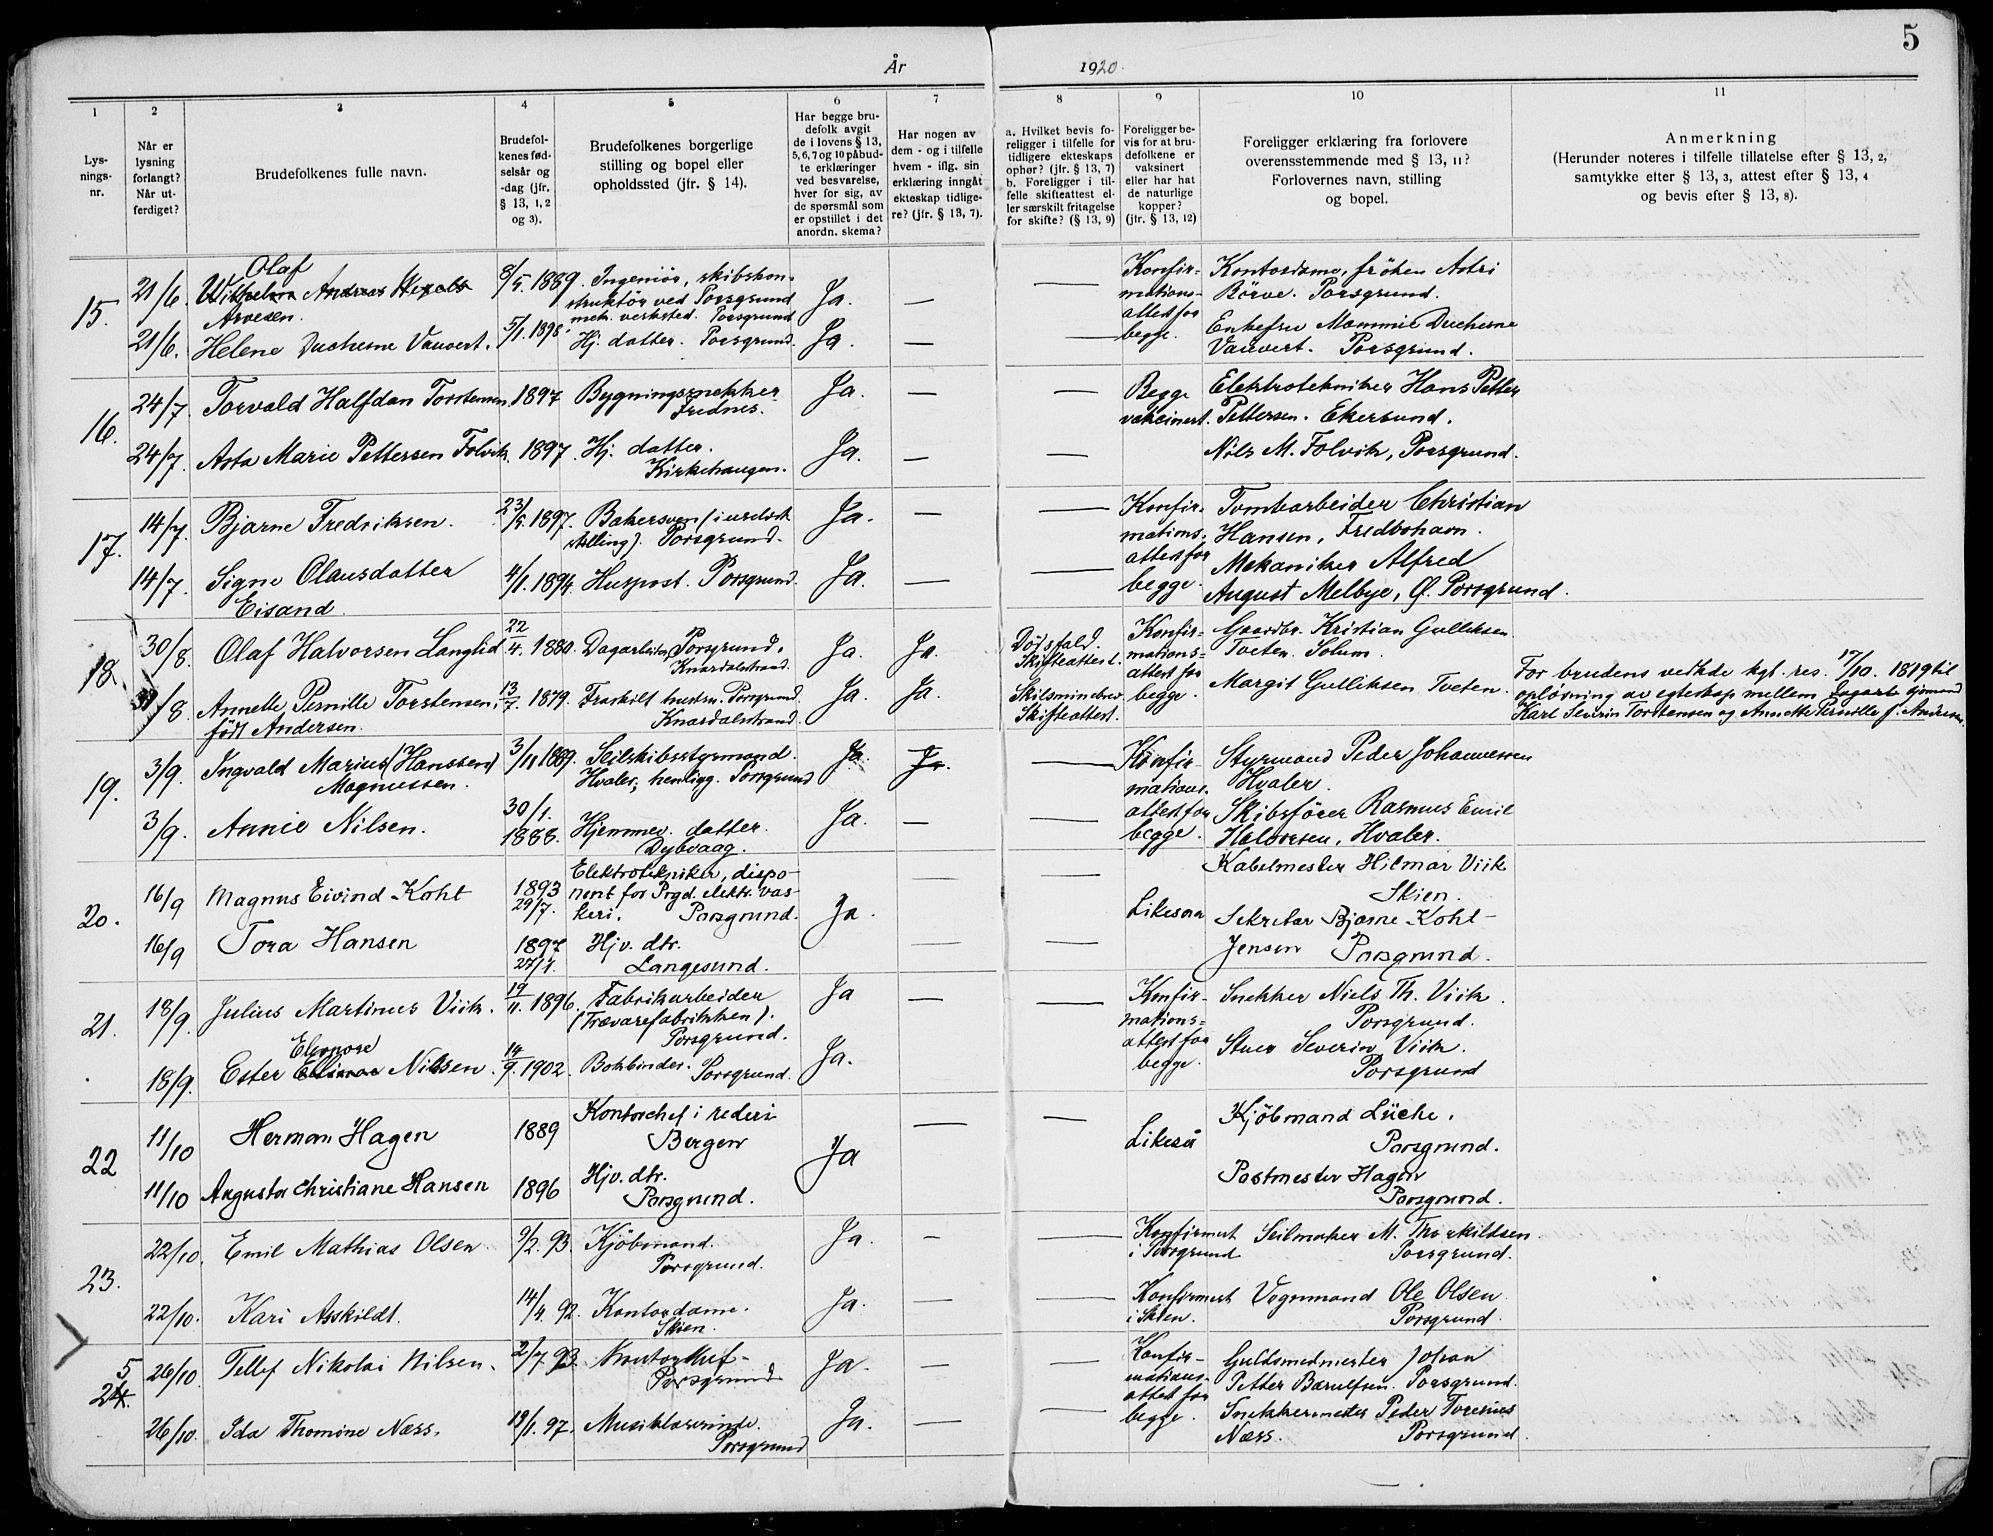 5
År 1920.
1 2 3 4 5 6 7 8 9 10 11
Lys-
nings-
nr.
Når er
lysning
forlangt?
Når ut-
ferdiget?
Brudefolkenes fulle navn.
Brudefol-
kenes fød-
selsår og
-dag (jfr.
§ 13, 1, 2
og 3).
Brudefolkenes borgerlige
stilling og bopel eller
opholdssted (jfr. § 14).
Har begge bru-
defolk avgit
de i lovens § 13,
5, 6, 7 og 10 påbud-
te erklæringer
ved besvarelse,
hver for sig, av
de spørsmål som
er opstillet i det
anordn. skema?
Har nogen av
dem - og i tilfelle
hvem - iflg. sin
erklæring inngåt
ekteskap tidlige-
re? (jfr. § 13, 7).
a. Hvilket bevis fo-
religger i tilfelle for
tidligere ekteskaps
ophør? (jfr. § 13, 7)
b. Foreligger i til-
felle skifteattest el-
ler særskilt fritagelse
for skifte? (§ 13, 9)
Foreligger be-
vis for at bru-
defolkene er
vaksinert
eller har hat
de naturlige
kopper?
(jfr. § 13, 12)
Foreligger erklæring fra forlovere
overensstemmende med § 13, 11?
Forlovernes navn, stilling
og bopel.
Anmerkning
(Herunder noteres i tilfelle tillatelse efter § 13, 2,
samtykke efter § 13, 3, attest efter § 13, 4
og bevis efter § 13, 8).
15.
21/6.
Olaf
Wilhelm Andreas Wexels
Arvesen.
8/5. 1889.
Ingeniør, skibskon-
struktør ved Porsgrund
mek. verksted. Porsgrund
Ja. —
—
Konfir-
mations-
attest for
begge.
Kontordame, frøken Astri
Børve. Porsgrund.
21/6.
Helene Duchesne Vauvert.
5/1. 1898.
Hj. datter. Porsgrund.
Ja. —
—
Enkefru Mammie Duchesne
Vauvert. Porsgrund.
16.
24/7
Torvald Halfdan Torstensen.
1897
Bygningssnekker
Frednes.
Ja. —
—
Begge
vaksinert.
Elektrotekniker Hans Petter
Pettersen. Ekersund.
24/7.
Asta Marie Pettersen Folvik.
1897.
Hj. datter.
Kirkehaugen.
Ja. —
—
Nils M. Folvik, Porsgrund.
17.
14/7.
Bjarne Fredriksen.
23/5. 1897.
Bakersven (i
stilling). Porsgrund.
Ja. —
—
Konfir-
mations-
attest for
begge.
Tomtearbeider Christian
Hansen, Fredbohavn.
14/7.
Signe Olausdatter
Eisand.
4/1. 1894.
Huspost. Porsgrund.
Ja. —
—
Mekaniker Alfred
August Melbye, Ø. Porsgrund.
18.
30/8.
Olaf Halvorsen Langlid
22/4. 1880.
Dagarbeider, Porsgrund,
Knardalstrand.
Ja. Ja.
Dödsfald.
Skifteattest.
Konfir-
mations-
attest for
begge.
Gaardbr. Kristian Gulliksen
Tveten. Solum.
30/8
Annette Pernille Torstensen,
født Andersen.
13/7. 1879.
Fraskilt hustru. Porsgrund.
Knardalstrand.
Ja. Ja.
Skilsmissebrev
Skifteattest.
Margit Gulliksen Tveten.
For brudens vedkde kgl. res. 17/10. 1819 til
opløsning av egteskap mellem
Karl Severin Torstensen og Annette Pernille f. Andersen.
19.
3/9.
Ingvald Marius (Hanssen)
Magnussen.
3/11 1889.
Seilskibsstyrmand.
Hvaler; henligg. Porsgrund
Ja. Ja.
—
Konfir-
mations-
attest for
begge.
Styrmand Peder Johannessen
Hvaler.
3/9.
Annie Nilsen.
30/1.
1888.
Hjemmev. datter.
Dybvaag.
Ja. —
—
Skibsfører Rasmus Emil
Halvorsen, Hvaler.
20.
16/9
Magnus Eivind Koht
1893
29/7.
Elektrotekniker, dispo-
nent for Prgd. elektr. vas-
keri. Porsgrund.
Ja.
—
—
Likesaa
Kabelmester Hilmar Viik
Skien.
16/9
Tora Hansen
1897
27/1.
Hjv. dtr.
Langesund.
—
—
Sekretær Bjarne Koht-
Jensen Porsgrund.
21.
18/9.
Julius Martinus Viik.
19/11. 1896.
Fabrikarbeider
(Trævarefabrikken).
Porsgrund.
Ja —
—
Konfir-
mations-
attest for
begge.
Snekker Niels Th. Viik.
Porsgrund.
18/9.
Eleonore
Ester Nilsen.
14/9. 1902.
Bokbinder. Porsgrund.
Ja.
Stuer Severin Viik.
Porsgrund
22
11/10
Herman Hagen
1889
Kontorchef i rederi
Bergen
Ja
—
—
Likeså
Kjøbmand Lücke.
Porsgrund.
11/10
Augusta Christiane Hansen
1896
Hjv. dtr.
Porsgrund.
Postmester Hagen
Porsgrund.
23.
22/10.
Emil Mathias Olsen
9/2. 93.
Kjøbmand.
Porsgrund.
Ja. —
—
Konfirmert
i Porsgrund
Seilmaker M. Thorkildsen.
Porsgrund.
22/10.
Kari Asskildt.
14/4. 92.
Kontordame.
Skien.
Ja. —
—
Konfirmert
i Skien.
Vognmand Ole Olsen
Porsgrund.
5
24.
26/10.
Tellef Nikolai Nilsen.
2/7. 93.
Kontorchef-
Porsgrund
Ja. —
—
Konfir-
mations-
attest for
begge.
Guldsmedmester Johan
Petter Barulfsen. Porsgrund.
26/10.
Ida Thomine Næss.
19/1. 97.
Musiklærerinde.
Porsgrund
Ja. —
—
Snekkermester Peder Torenius
Næss. Porsgrund.